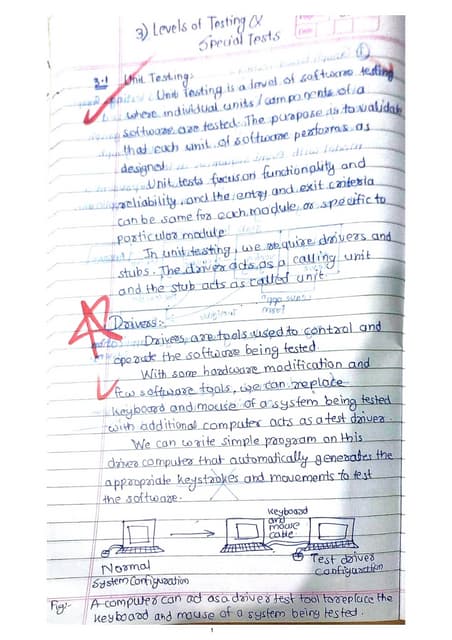 3) Levels of Testing &
Special Tests
1
3.1 Unit Testing:
Unit Testing is a level of software testing
where individual units/components of a
software are tested. The purpose is to validate
that each unit of software performs as
designed
Unit tests focus on functionality and
reliability, and the entry and exit criteria
can be same for each module or specific to
particular module
In unit testing, we require drivers and
stubs. The driver acts as a calling unit
and the stub acts as called unit.
Drivers:-
Drivers, are tools used to control and
operate the software being tested
With some hardware modification and
few software tools, we can replace
keyboard and mouse of a system being tested
with additional computer acts as a test driver.
We can write simple program on this
driver computer that automatically generates the
appropriate keystrokes and movements to test
the software.
keyboard
and
mouse
cable
Normal
System Configuration
Test driver
Configuration
Fig:- A computer can act as a driver test tool to replace the
keyboard and mouse of a system being tested.
1